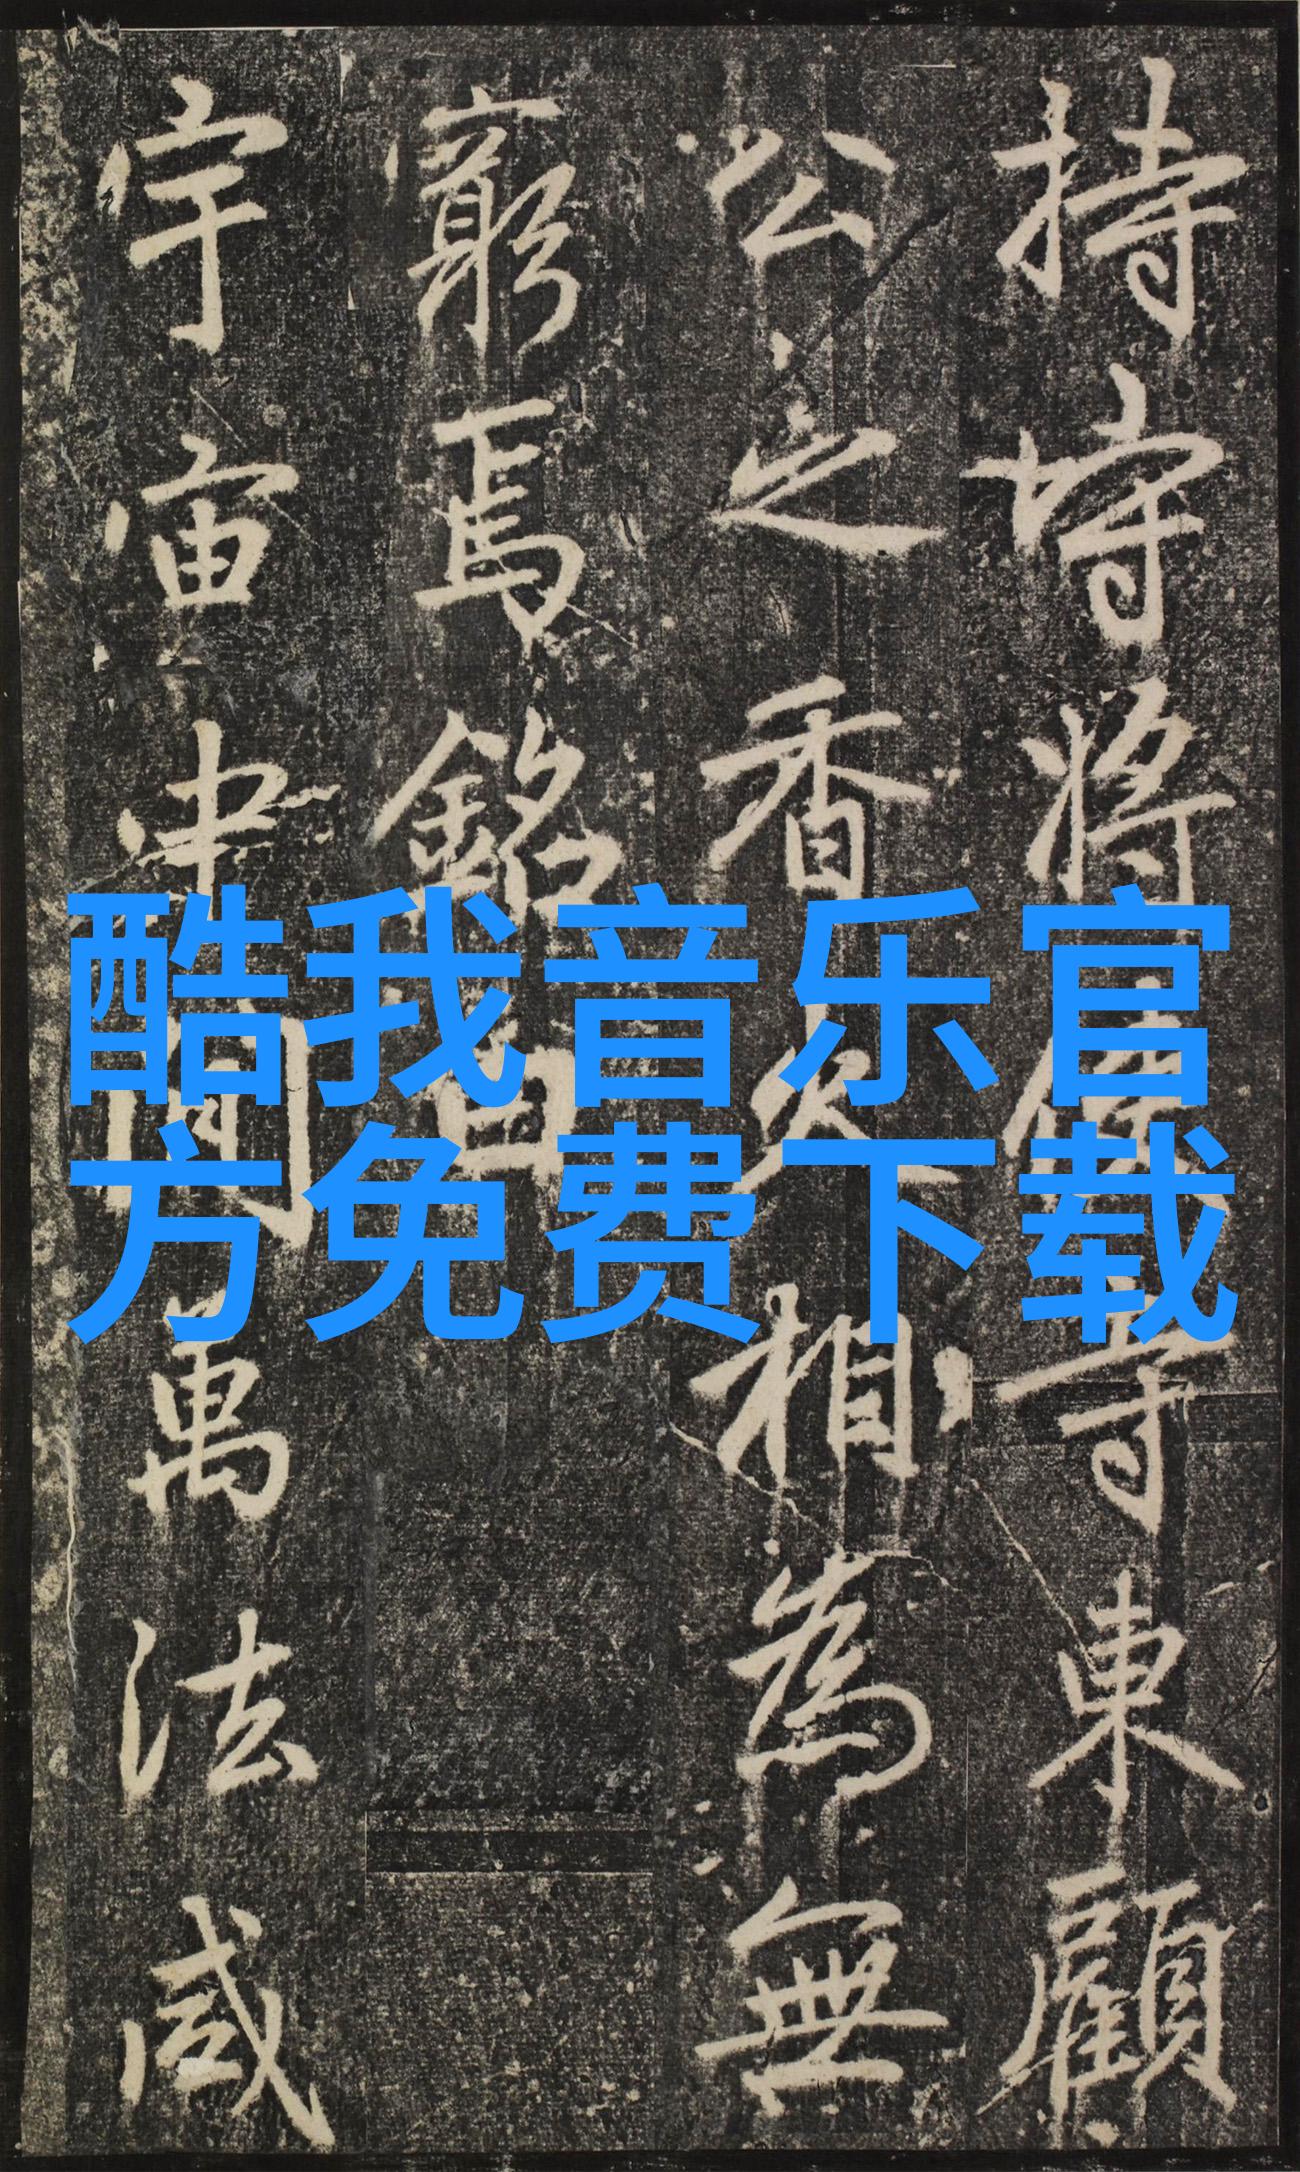 持將東顧
公之香火相為無
窮焉銘曰
宇宙中間萬法咸
酷我音乐官
方免费下载